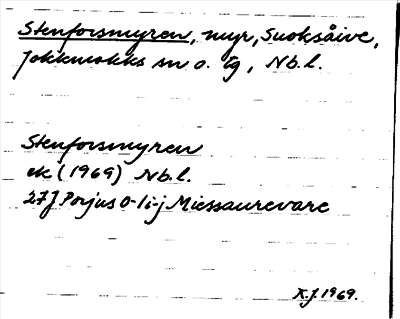 Stenforsmyren, myr, Suoksåive,
Jokkmokks sn o. tg, Nb.l.
Stenforsmyren
ek (1969) Nb.l.
27J Porjus 0-1 i-j Miessaurevare
K.J. 1969.